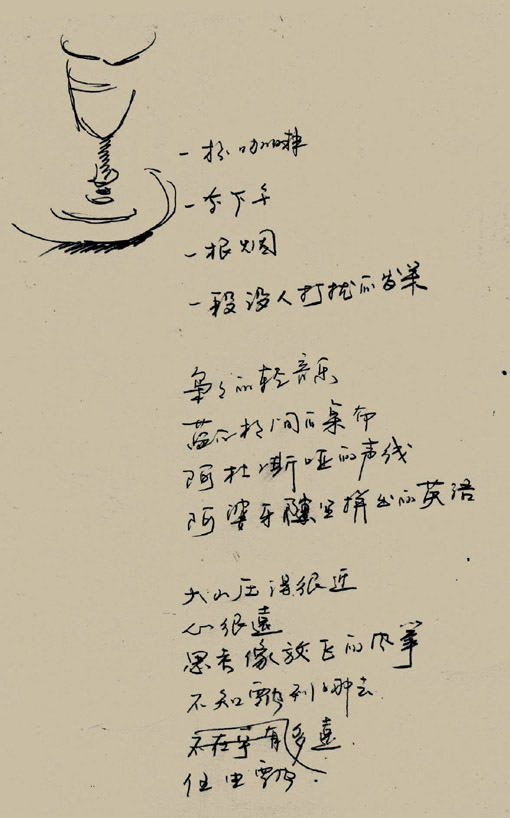 一杯咖啡
一个下午
一根烟
一段没人打扰的发呆
袅袅的轻音乐
蓝色 间的桌布
阿杜嘶哑的声线
阿婆牙缝里挤出的英语
大山压得很近
心很遠
思考像放飞的风筝
不知飘到哪去
不在乎有多遠.
任由飘.